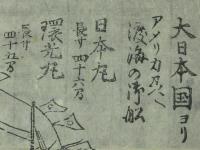 大日本国ヨリ
アメリカ乃ヘ
渡海の御船
日本丸
長サ四十六万
環光丸
長サ
四十五万